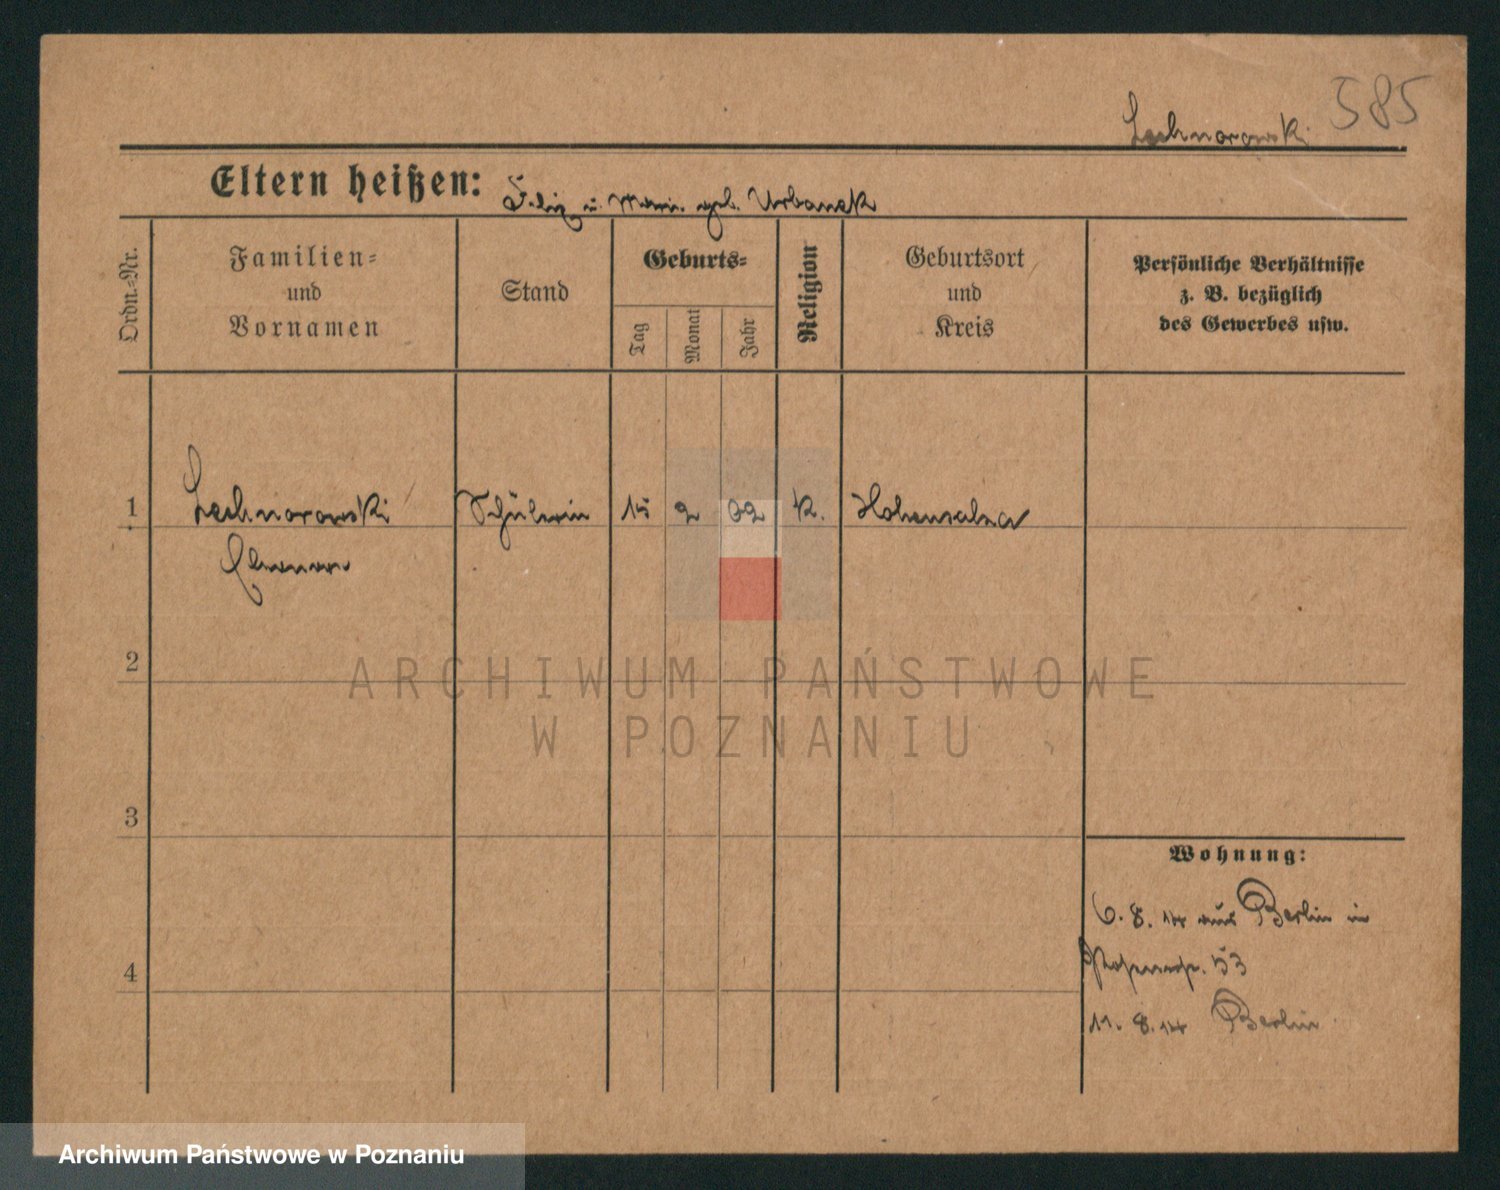 585
Lechnorowski
Eltern heißen: Felix u. Marie geb. Urbanek
Ordn.-Nr.
Familien-
und
Vornamen
Stand
Geburts-
Tag
Monat
Jahr
Religion
Geburtsort
und
Kreis
Persönliche Verhältnisse
z. B. bezüglich
des Gewerbes usw.
1 Lechnorowski Schülerin 15 2 02 K. Hohensalza
2
3
4
Wohnung:
6. 8. 14 aus Berlin in
53
11. 8. 14 Berlin
ARCHIWUM PAŃSTWOWE
W POZNANIU
Archiwum Państwowe w Poznaniu